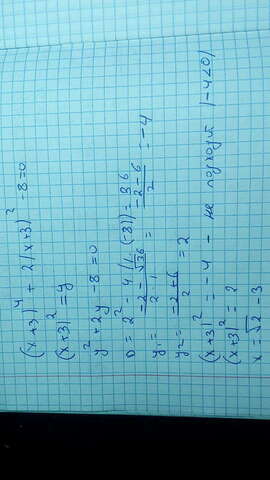 (x+3)⁴ + 2(x+3)² - 8 = 0
(x+3)² = y
y² + 2y - 8 = 0
D = 2² - 4·(1·(-8)) = 36
y₁ = (-2 - √36)/(2·1) = (-2-6)/2 = -4
y₂ = (-2+6)/2 = 2
(x+3)² = -4 - не подходит (-4<0)
(x+3)² = 2
x = √2 - 3